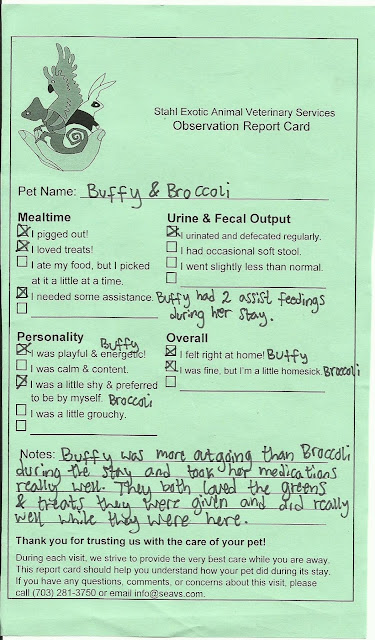 Stahl Exotic Animal Veterinary Services
Observation Report Card
Pet Name: Buffy & Broccoli
Mealtime
I pigged out!
I loved treats!
I ate my food, but I picked
at it a little at a time.
I needed some assistance. Buffy had 2 assist feedings
during her stay.
Urine & Fecal Output
I urinated and defecated regularly.
I had occasional soft stool.
I went slightly less than normal.
Personality
Buffy
I was playful & energetic!
I was calm & content.
I was a little shy & preferred
to be by myself. Broccoli
I was a little grouchy.
Overall
I felt right at home! Buffy
I was fine, but I'm a little homesick. Broccoli
Notes: Buffy was more outgoing than Broccoli
during the stay and took her medications
really well. They both loved the greens
& treats they were given and did really
well while they were here.
Thank you for trusting us with the care of your pet!
During each visit, we strive to provide the very best care while you are away.
This report card should help you understand how your pet did during its stay.
If you have any questions, comments, or concerns about this visit, please
call (703) 281-3750 or email info@seavs.com.